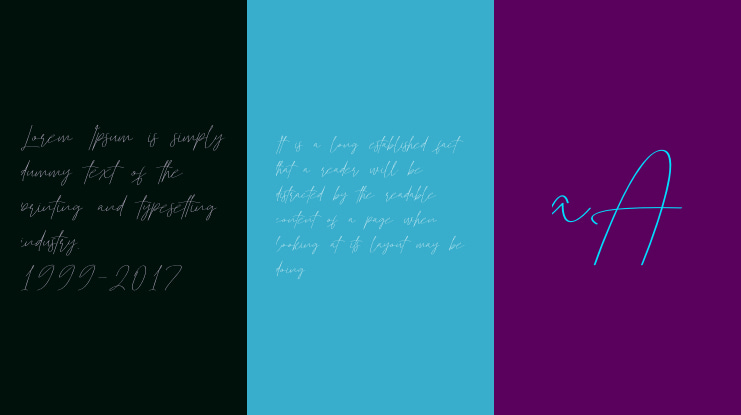 Lorem Ipsum is simply
dummy text of the
printing and typesetting
industry.
1999-2017
It is a long established fact
that a reader will be
distracted by the readable
content of a page when
looking at its layout may be
doing
aA